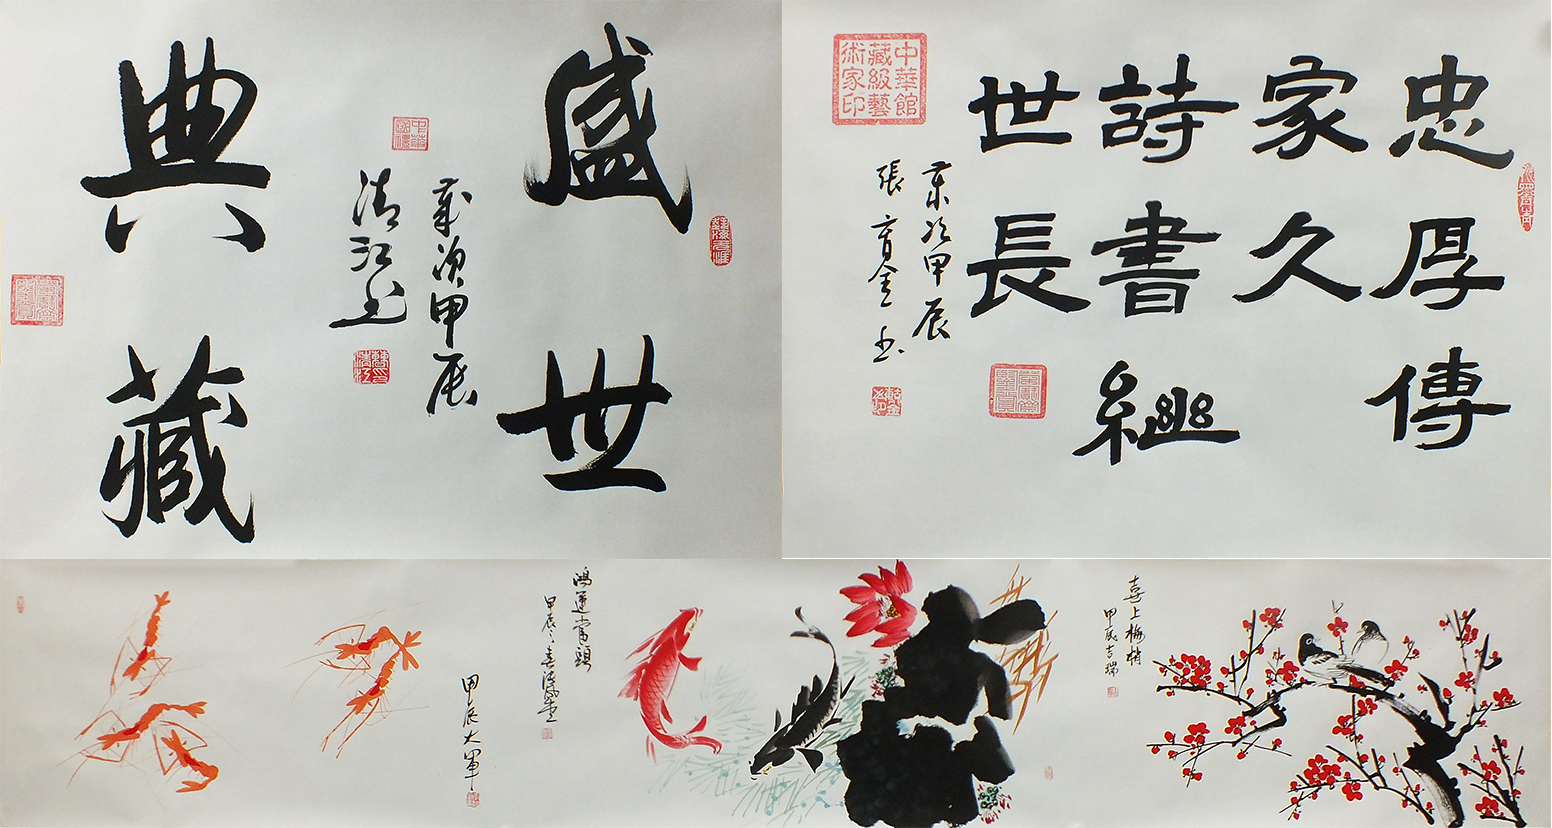 盛世
歲次甲辰
清江书
典藏
忠厚傳
家久
詩書繼
世長
歲次甲辰
張育金书
中華館
藏級藝
術家印
甲辰大軍
鴻運當頭
甲辰
喜上梅梢
甲辰吉瑞